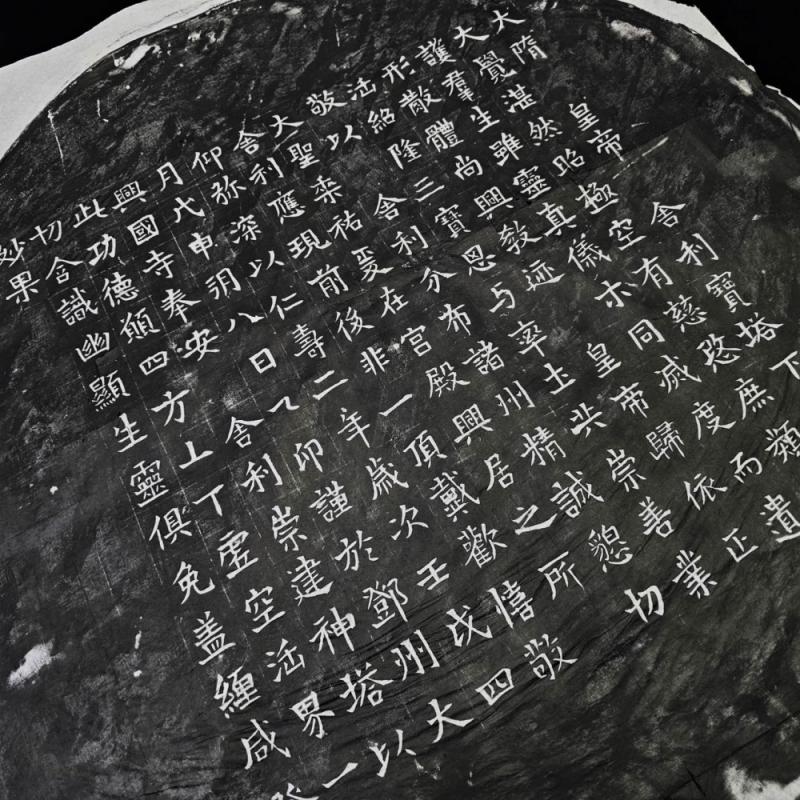 大隋皇帝舍利寶塔下
大覺湛然昭極空有慈愍庶類
護羣生雖靈真儀不同滅度而遺
形散體尚興教迹皇帝歸依正
法紹隆三寶思与率土共崇善業
敬以舍利分布諸州精誠懇切
大聖垂祐爰在宮殿興居之所
舍利應現前後非一頂戴歡憘敬
仰弥深以仁壽二年歲次壬戌四
月戊申朔八日乙卯謹於鄧州大
興國寺奉安舍利崇建神塔以
此功德願四方上下虛空法界一
切含識幽顯生靈俱免蓋纏咸
妙果